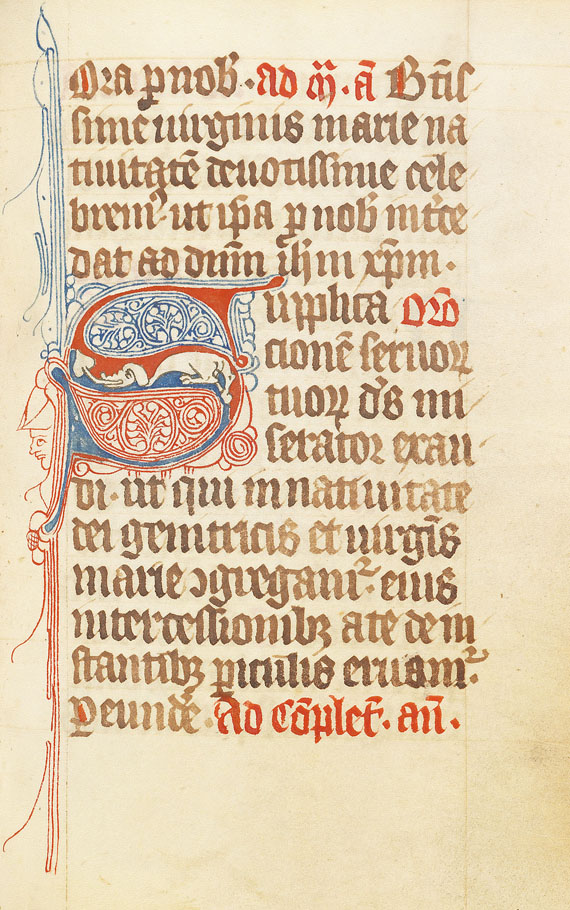 Ora ꝑ nob̄ · ad m̄ · a᷑ Bt̄is
sime uirginis marie na
tiuitatē deuotissime cele
brem᷒ ut ip̄a ꝑ nob̄ int̄ce
dat ad dūm ih̄m xp̄m ·
Supplica Oro᷑
tionē seruoꝝ
tuoꝝ d̄s mi
serator exau
di · ut qui in natiuitate
dei genitricis et uirgīs
marie ꝯgregamr᷑ · eius
intercessionibꝫ a te de in
stantibꝫ ꝑiculis eruamr᷑ ·
Ꝑ eundē · Ad Cōplet̄ · an̄ ·